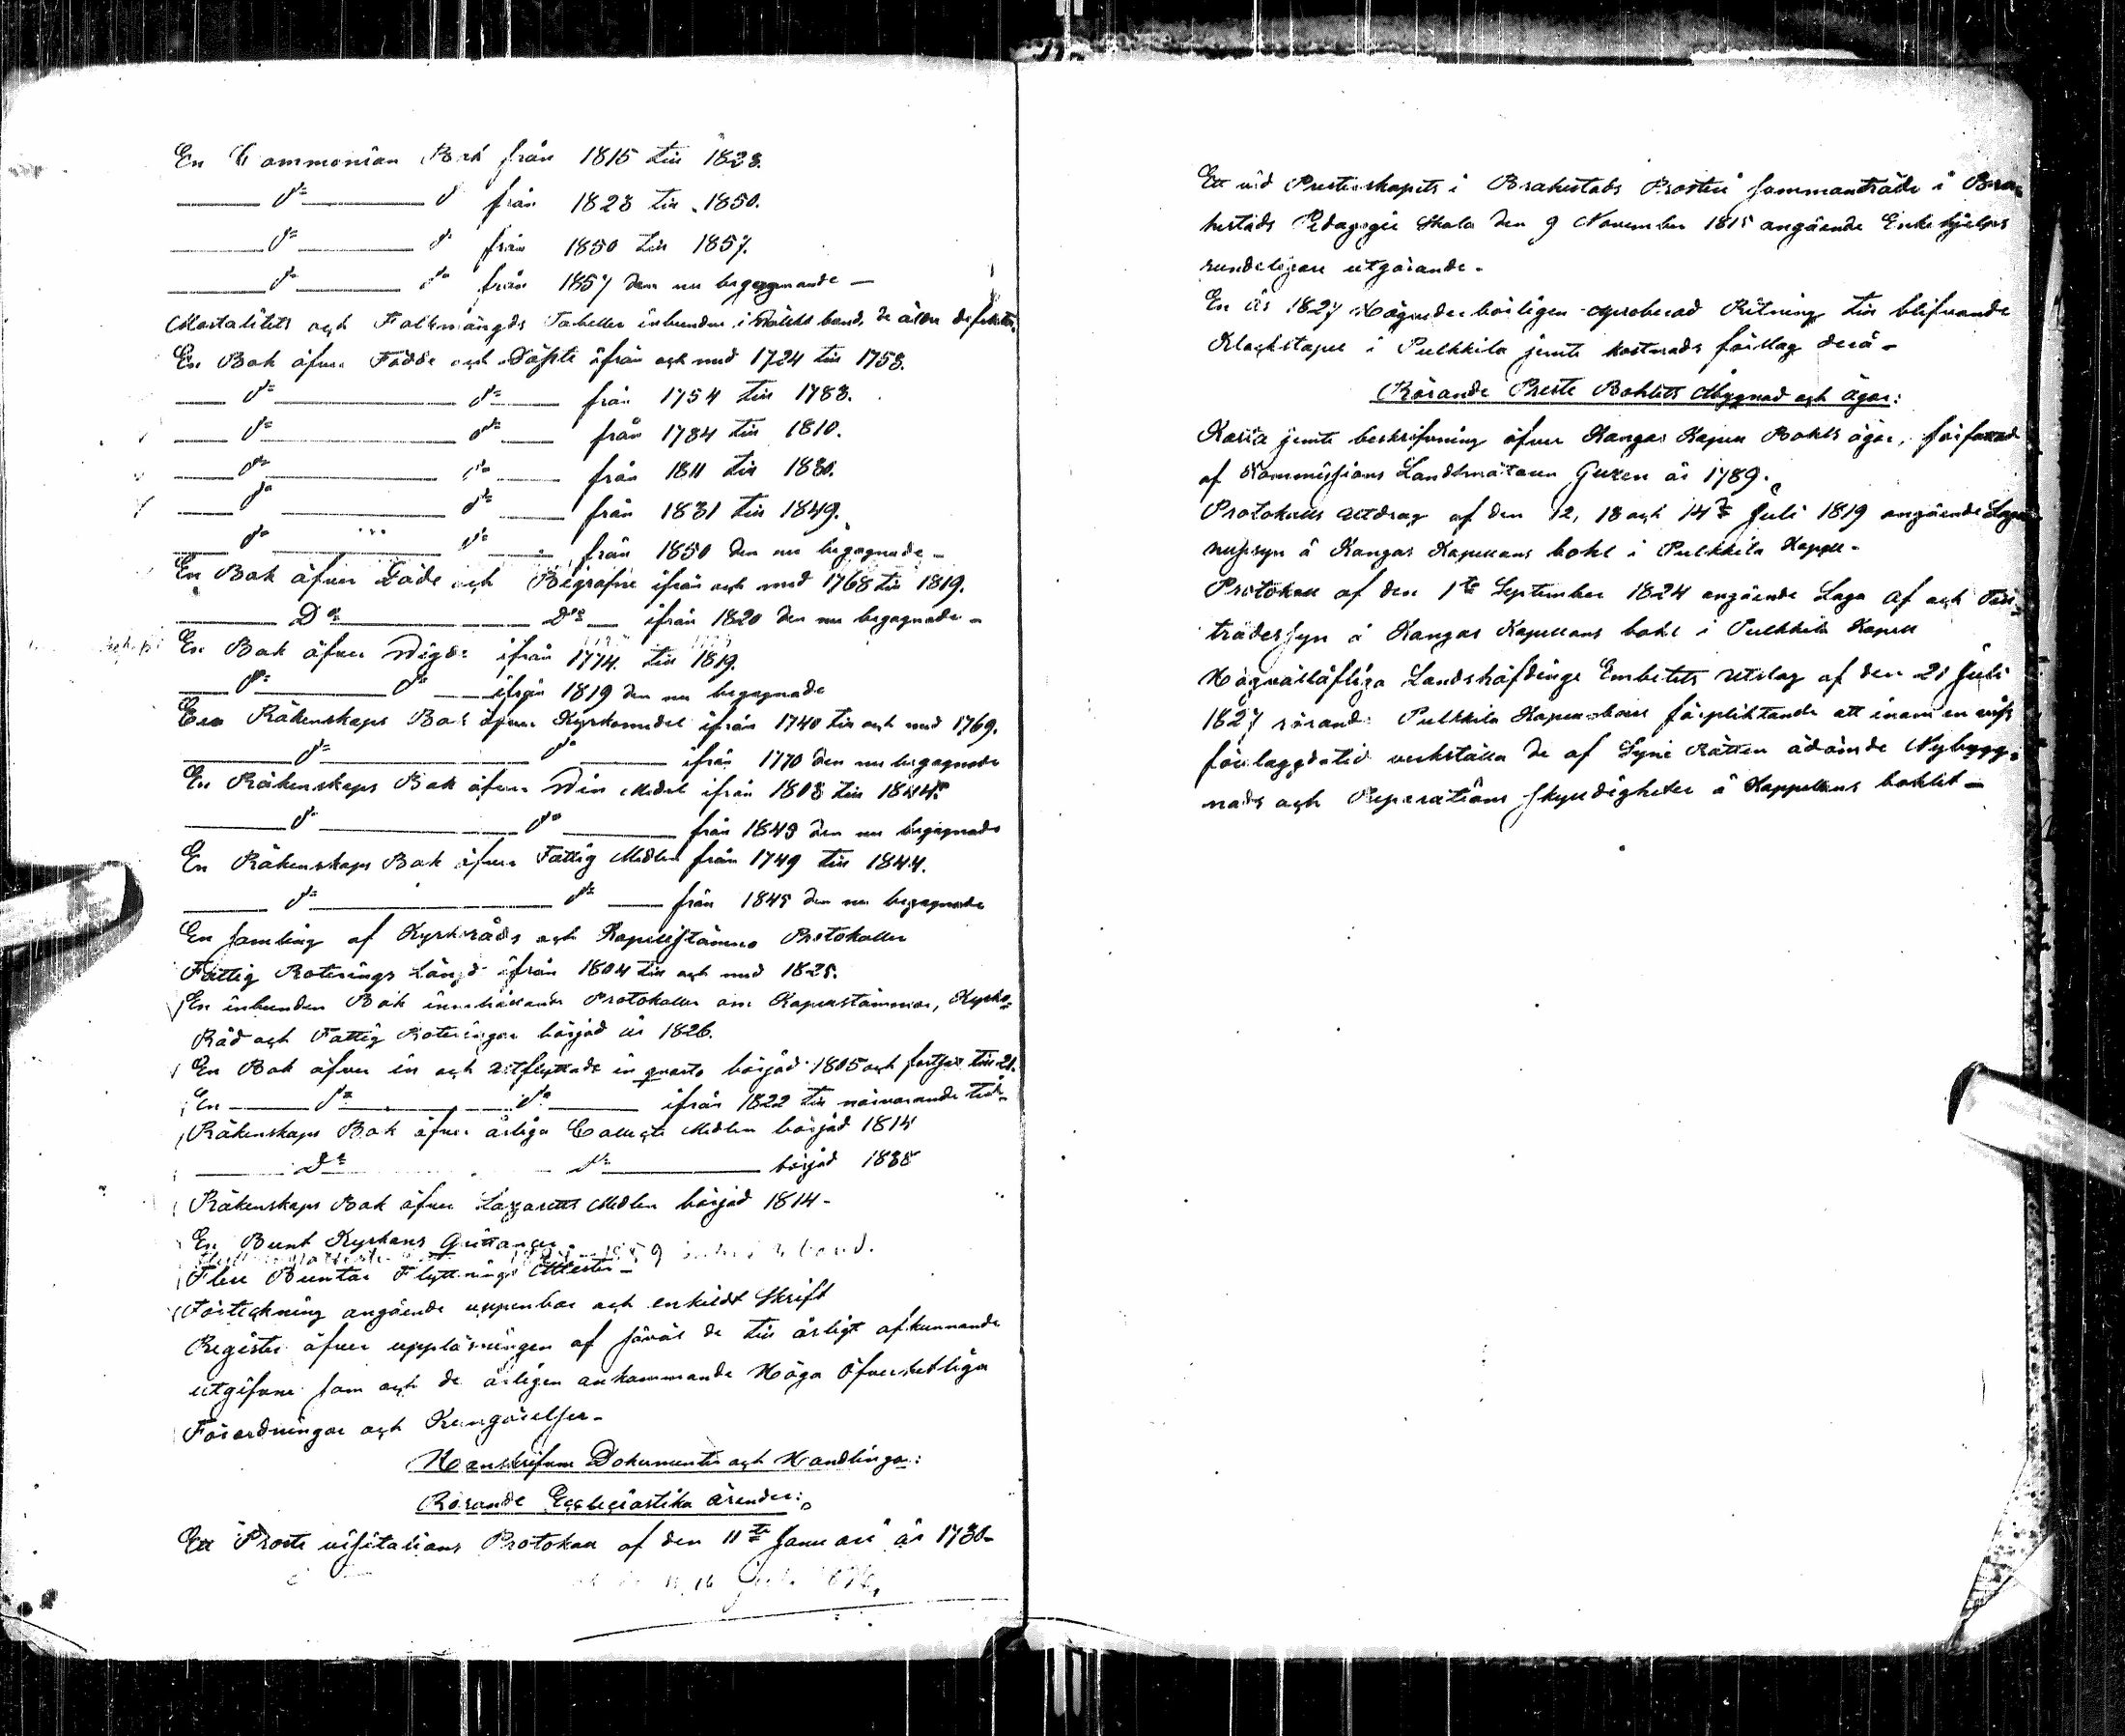 En Communion Bok från 1815 till 1823.
d:o d:o från 1823 till 1850.
d:o d:o från 1850 till 1857.
d:o d:o från 1857 den nu begagnande
Mortalitets och Folkmängds Tabeller inbundne i band, de äldre defekta
En Bok öfver Födde och Döpte ifrån och med 1724 till 1753.
d:o d:o från 1754 till 1783.
d:o d:o från 1784 till 1810.
d:o d:o från 1811 till 1830.
d:o d:o från 1831 till 1849.
d:o d:o från 1850 den nu begagnade
En Bok öfver Döde och Begrafne ifrån och med 1768 till 1819.
D:o D:o ifrån 1820 den nu begagnade
En Bok öfver Vigde ifrån 1774 till 1819.
d:o d:o ifrån 1819 den nu begagnade
En Räkenskaps Bok öfver Kyrkomedel ifrån 1740 till och med 1769.
d:o d:o ifrån 1770 den nu begagnade
En Räkenskaps Bok öfver Vin Medel ifrån 1808 till 1844.
d:o d:o från 1849 den nu begagnade
En Räkenskaps Bok öfver Fattig Medlen från 1749 till 1844.
d:o d:o från 1845 den nu begagnade
En samling af Kyrkoråds och Kapellstämmo Protokoller
Fattig Roterings Längd ifrån 1804 till och med 1825.
En inbunden Bok innehållande Protokoller om Kapellstämmor, Kyrko-
Råd och Fattig Roteringar börjad år 1826.
En Bok öfver in och utflyttade in quarto börjad 1805 och fortsatt till 21.
En d:o d:o ifrån 1822 till närvarande tid
Räkenskaps Bok öfver årliga Collecte Medlen börjad 1814
D:o d:o börjad 1838
Räkenskaps Bok öfver Lazaretts Medlen börjad 1814
En Bunt Kyrkans Quittancer
Flere Buntar Flyttnings Attester
Förteckning angående uppenbar och enskildt Skrift
Register öfver uppläsningen af såväl de till årligt afkunnande
utgifvne som och de årligen ankommande Höga Öfverhetliga
Förordningar och Kungörelser
Handskrifne Dokumenter och Handlingar:
Rörande Ecclesiastika ärender:
Ett Proste visitations Protokoll af den 11te Januari år 1730
Ett vid Presterskapets i Brahestads Prosteri sammanträde i Bra-
hestads Pedagogie Skola den 9 November 1815 angående Enke hjelps
utgörande
En år 1827 Högvederbörligen approberad Ritning till blifvande
Klockstapel i Pulkkila jemte kostnads förslag derå
Rörande Preste Bohlets Åbyggnad och ägor:
Karta jemte beskrifning öfver Kangas Kapell Bohls ägor, författad
af Kommissions Landtmätaren år 1789.
Protokolls Utdrag af den 12, 13 och 14de Juli 1819 angående Laga
Husesyn å Kangas Kapellans bohl i Pulkkila Kapell
Protokoll af den 1te September 1824 angående Laga Af och Till-
trädessyn å Kangas Kapellans bohl i Pulkkila Kapell
Högvällofliga Landshöfdinge Embetets Utslag af den 21 Juli
1827 rörande Pulkkila Kapellboers förpliktande att inom en viss
förelaggd tid verkställa de af Syne Rätten ådömde Nybygg-
nads och Reparations skyldigheter å Kappellans bohlet